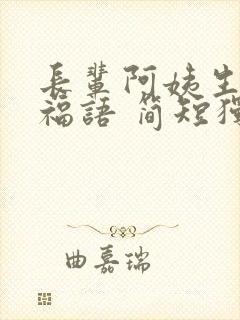 長輩阿姨生
福語 简短獨
曲嘉瑞